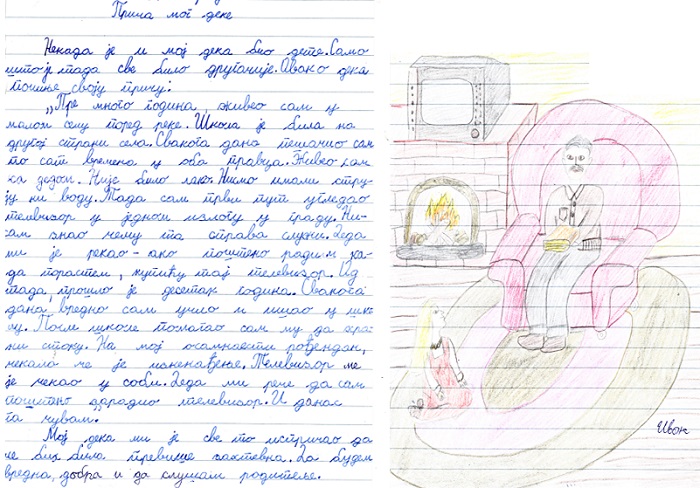 Прича мог деке
Некада је и мој дека био дете. Само
што је тада све било другачије. Овако дека
почиње своју причу:
„Пре много година, живео сам у
малом селу поред реке. Школа је била на
другој страни села. Свакога дана пешачио сам
по сат времена у оба правца. Живео сам
са дедом. Није било лако. Нисмо имали стру-
ју ни воду. Тада сам први пут угледао
телевизор у једном излогу у граду. Ни-
сам знао чему та справа служи. Деда
ми је рекао - ако поштено радим ка-
да порастем, купићу тај телевизор. Од
тада, прошло је десетак година. Свакога
дана вредно сам учио и ишао у шко-
лу. После школе помагао сам му да хра-
ни стоку. На мој осамнаести рођендан,
чекало ме је изненађење. Телевизор ме
је чекао у соби. Деда ми рече да сам
поштено зарадио телевизор. И данас
га чувам."
Мој дека ми је све то испричао да
не бих била превише захтевна. Да будем
вредна, добра и да слушам родитеље.
Ивон